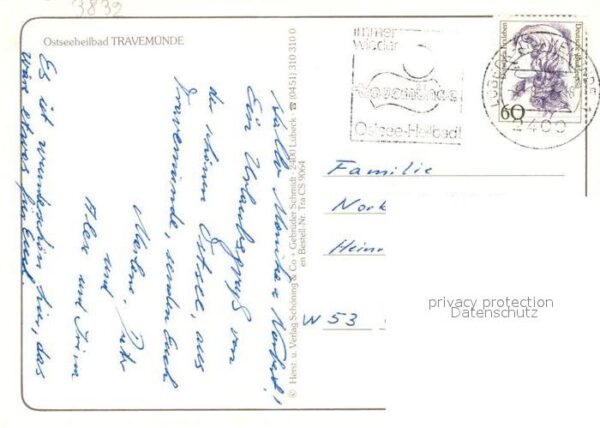 3832
Ostseeheilbad TRAVEMÜNDE
Hallo Monika & Norbert!
Ein Urlaubsgruß von
der schönen Ostsee, aus
Travemünde, senden Euch
Marlene,
und
Alex und Irim
Es ist wunderschön hier, das
wär etwas für Euch.
© Herst. u. Verlag Schöning & Co · Gebrüder Schmidt · 2400 Lübeck · ☎ (0451) 310 310 0
en Bestell-Nr. Tra CS 9064
immer
wieder
Travemünde
Ostsee-Heilbad!
60
2400
Familie
Nor
Hein
W 53
privacy protection
Datenschutz